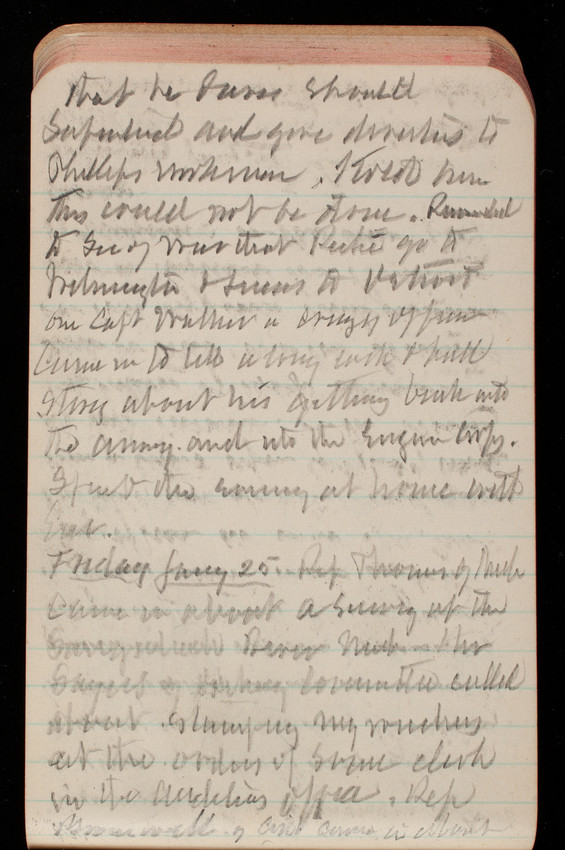 that he Davis should
Superintend and give directions to
Phillips workman. I told him
this could not be done. Recommended
to Sec of War that Petite go to
Wilmington & Lucas to Detroit
one Capt Walker a crazy officer
Came in to tell a long cock & bull
story about his getting back into
the army and into the Engin Corps.
Spent the evening at home with

Friday Jany 25 Rep Thomas of Mich
Came in about a Survey at the
River Mich Mr
Sayers of Committee called
about Stamping my vouchers
at the orders of some clerk
in the Auditors office. Rep
of came in about